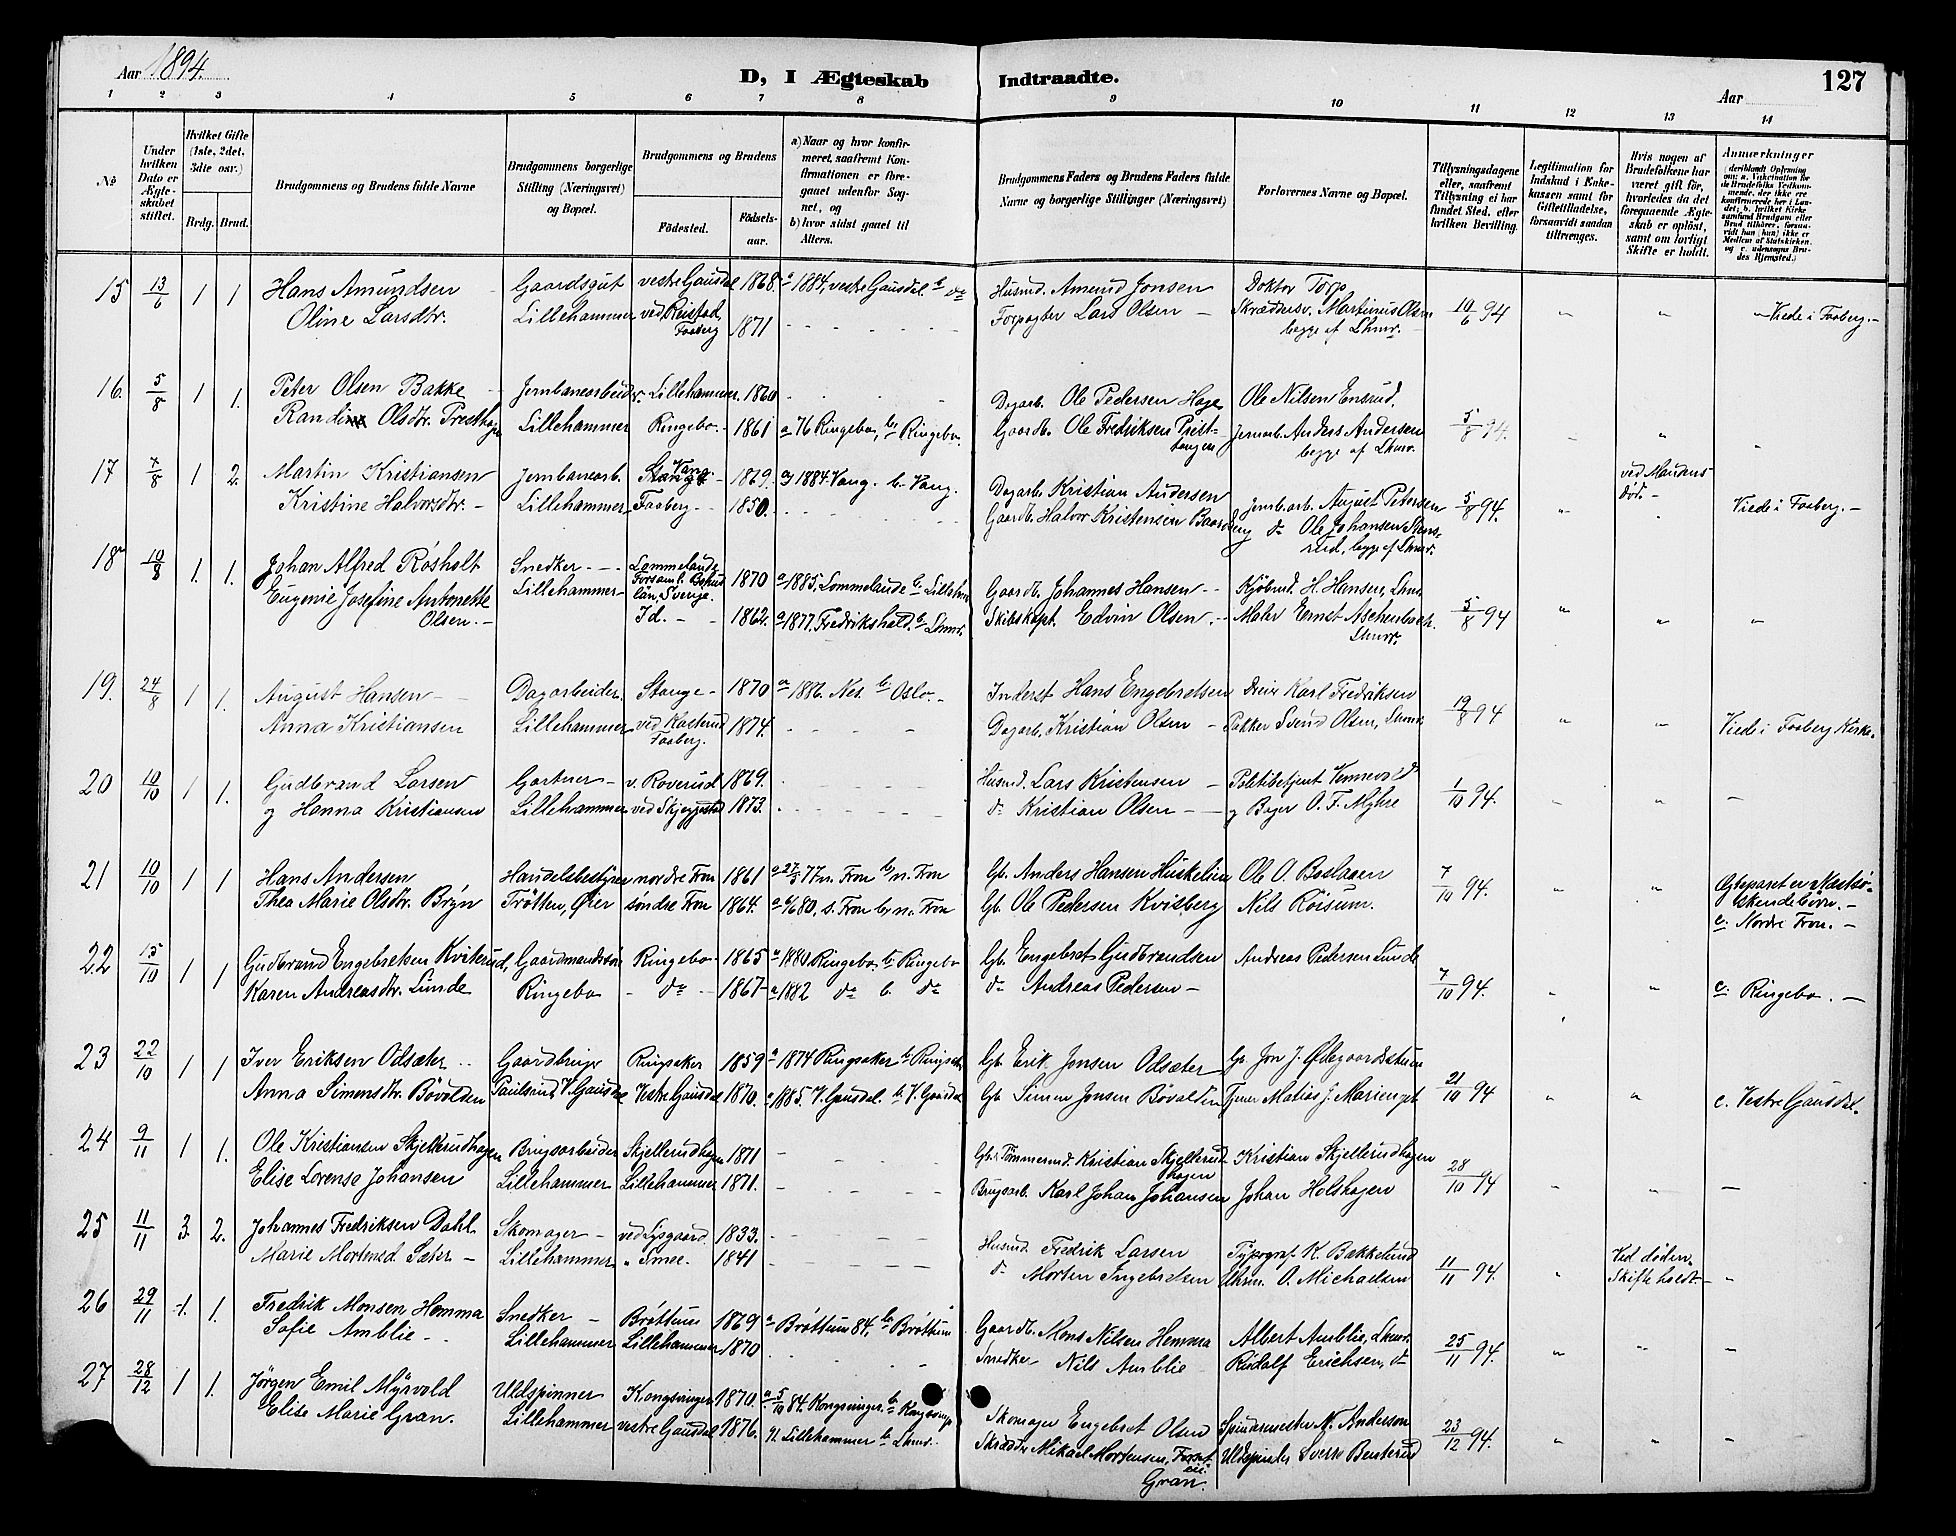 Aar 1894.
D, I Ægteskab Indtraadte.
Aar
127
1 2 3 4 5 6 7 8 9 10 11 12 13 14
№
Under hvilken Dato er Ægteskabet stiftet.
Hvilket Gifte (1ste, 2det, 3die osv.)
Brdg. Brud.
Brudgommens og Brudens fulde Navne
Brudgommens borgerlige Stilling (Næringsvei) og Bopæl.
Brudgommens og Brudens
Födested.
Födselsaar.
a) Naar og hvor konfirmeret, saafremt Konfirmationen er foregaaet udenfor Sognet, og
b) hvor sidst gaaet til Alters.
Brudgommens Faders og Brudens Faders fulde Navne og borgerlige Stillinger (Næringsvei)
Forlovernes Navne og Bopæl.
Tillysningsdagene eller, saafremt Tillysning ei har fundet Sted, efter hvilken Bevilling.
Legitimation for Indskud i Enkekassen samt for Giftetilladelse, forsaavidt saadan tiltrænges.
Hvis nogen af Brudefolkene har været gift för, hvorledes da det foregaaende Ægteskab er oplöst, samt om lovligt Skifte er holdt.
Anmærkninger
15 13/6 1 1 Hans Amundsen Gaardsgut vestre Gausdal 1868. a 1884, vestre Gausdal. b do Husmd. Amund Jonsen Doktor Torp,
Oline Larsdtr. Lillehammer ved Reistad, Faaberg 1871 Forpagter Lars Olsen Skrædersv. Martinus Olsen begge af Lhmr. 10/6 94 Viede i Faaberg.
16. 5/8 1 1. Peter Olsen Bakke Jernbanearbeider. Lillehammer. 1860 Dagarb. Ole Pedersen Hage Ole Nilsen Ensrud.
Randi Olsdtr. Lillehammer Ringebo. 1861 a 76 Ringebo, b. Ringebo. Gaardb. Ole Fredriksen Jernarb. Anders Andersen begge af Lhmr. 5/8 94.
17 7/8 1 2. Martin Kristiansen Jernbanearb. Vang. 1869. a) 1884. Vang. b. Vang. Dagarb. Kristian Andersen Jernb.arb. August Petersen 5/8 94. ved Mandens död.
Kristine Halvorsdtr. Lillehammer Faaberg 1850. Gaardb. Halvor Kristensen do Ole Johansen begge af Lhmr. Viede i Faaberg.
18 10/8 1. 1. Johan Alfred Rösholt Snedker Lommelande Sverige. 1870 a 1885. Lommelande b. Gaardb. Johannes Hansen Kjöbmd. H. Hansen, Lhmr.
Eugenie Josefine Antonette Olsen. Lillehammer Id. 1862. a 1877. Fredrikshald. b Lhmr. Skibskapt. Edvin Olsen. Maler Ernst Aschenbach. Lhmr. 5/8 94
19. 24/8 1 1. August Hansen Dagarbeider. Stange 1870 a 1886. Nes. b. Oslo. Inderst Hans Engebretsen Karl Fredriksen 19/8 94
Anna Kristiansen Lillehammer ved Faaberg. 1874. Dagarb. Kristian Olsen Pakker Svend Olsen, Lhmr. Viede i Faaberg Kirke.
20 10/10 1 1. Gudbrand Larsen Gartner v. Roverud 1869. Husmd. Lars Kristensen Politibetjent Vennevold
og Hanna Kristiansen Lillehammer ved Skjeggestad 1873. do Kristian Olsen og Bager O. F. Myhre 1/10 94.
21 10/10 1 1 Hans Andersen Handelsbestyrer nordre Fron 1861 a 27/5 77 n. Fron b n. Fron Gb. Anders Hansen Huskelien Ole O. Boslagen 7/10 94. Ægteparet er Næstsöskendebörn.
Thea Marie Olsdtr. Bryn Trötten, Öier söndre Fron 1864. 80, s. Fron b. n. Fron Gb. Ole Pedersen Kvisberg Nils Röisum. c. Nordre Fron.
22 15/10 1 1 Gudbrand Engebretsen Kviterud, Gaardmandssön Ringebo 1865 a 1880 Ringebo, b. Ringebo Gb. Engebret Gudbrandsen Andreas Pedersen Lunde
Karen Andreasdtr. Lunde Ringebo do 1867 a 1882 do b. do do Andreas Pedersen 7/10 94. c. Ringebo.
23 22/10 1 1 Iver Eriksen Odsæter Gaardbruger Ringsaker 1859 a 1874 Ringsaker b. Ringsaker Gb. Erik Jonsen Odsæter Gb. Jon J. Ödegaardsstuen
Anna Simensdtr. Bövolden V. Gausdal Vestre Gausdal 1870. a 1885. V. Gausdal. b. V. Gausdal Gb. Simen Jonsen Bövolden Tjener Matias J. 21/10 94 c. Vestre Gausdal.
24 9/11 1 1. Ole Kristiansen Skjellerudhagen Brugsarbeider Skjellerudhagen 1871 Kristian Skjellerudhagen Kristian Skjellerudhagen
Elise Lorense Johansen Lillehammer Lillehammer 1871. Brugsarb. Karl Johan Johansen Johan Holshagen 28/10 94
25 11/11 3. 2. Johannes Fredriksen Dahl. Skomager ved Lysgaard 1833. Husmd. Fredrik Larsen Typograf K. Bakkerud Ved döden
Marie Mortensd. Sæter Lillehammer 1841 do Morten Ingebretsen O. Michaelsen 11/11 94. Skifte holdt
26 29/11 1. 1. Fredrik Monsen Hemma Snedker Bröttum 1869 a Bröttum 84, b. Bröttum Gaardb. Mons Nilsen Hemma Albert Amblie, Lhmr.
Sofie Amblie Lillehammer Lillehammer 1870 Snedker Nils Amblie Rudolf Erichsen, do 25/11 94.
27 28/12 1 1. Jörgen Emil Myrvold Uldspinner Kongsvinger 1870. a. 5/10 84. Kongsvinger. b. Kongsvinger Skomager Engebret Olsen Spindemester N. Anderson
Elise Marie Gran. Lillehammer vestre Gausdal 1876. Lillehammer b. Lhmr. Skrædder Mikael Mortensen, Gran. Uldspinder Sverre Benterud 23/12 94.